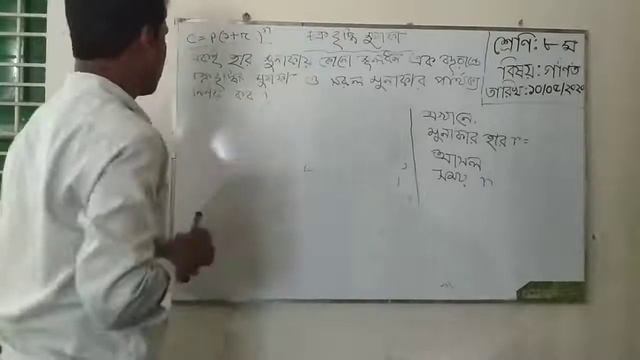 C = P(1+r)^n চক্রবৃদ্ধি মুনাফা
একই হার মুনাফায় কোনো মূলধন এক বছরান্তে
চক্রবৃদ্ধি মুনাফা ও সরল মুনাফার পার্থক্য
নির্ণয় কর।
শ্রেণি: ৮ম
বিষয়: গণিত
তারিখ:
এখানে,
মুনাফার হার r =
আসল
সময় n